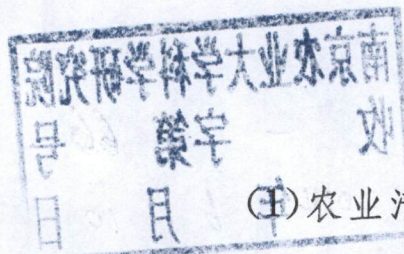 南京农业大学科学研究院
收 字第 号
年 月 日
(1)农业